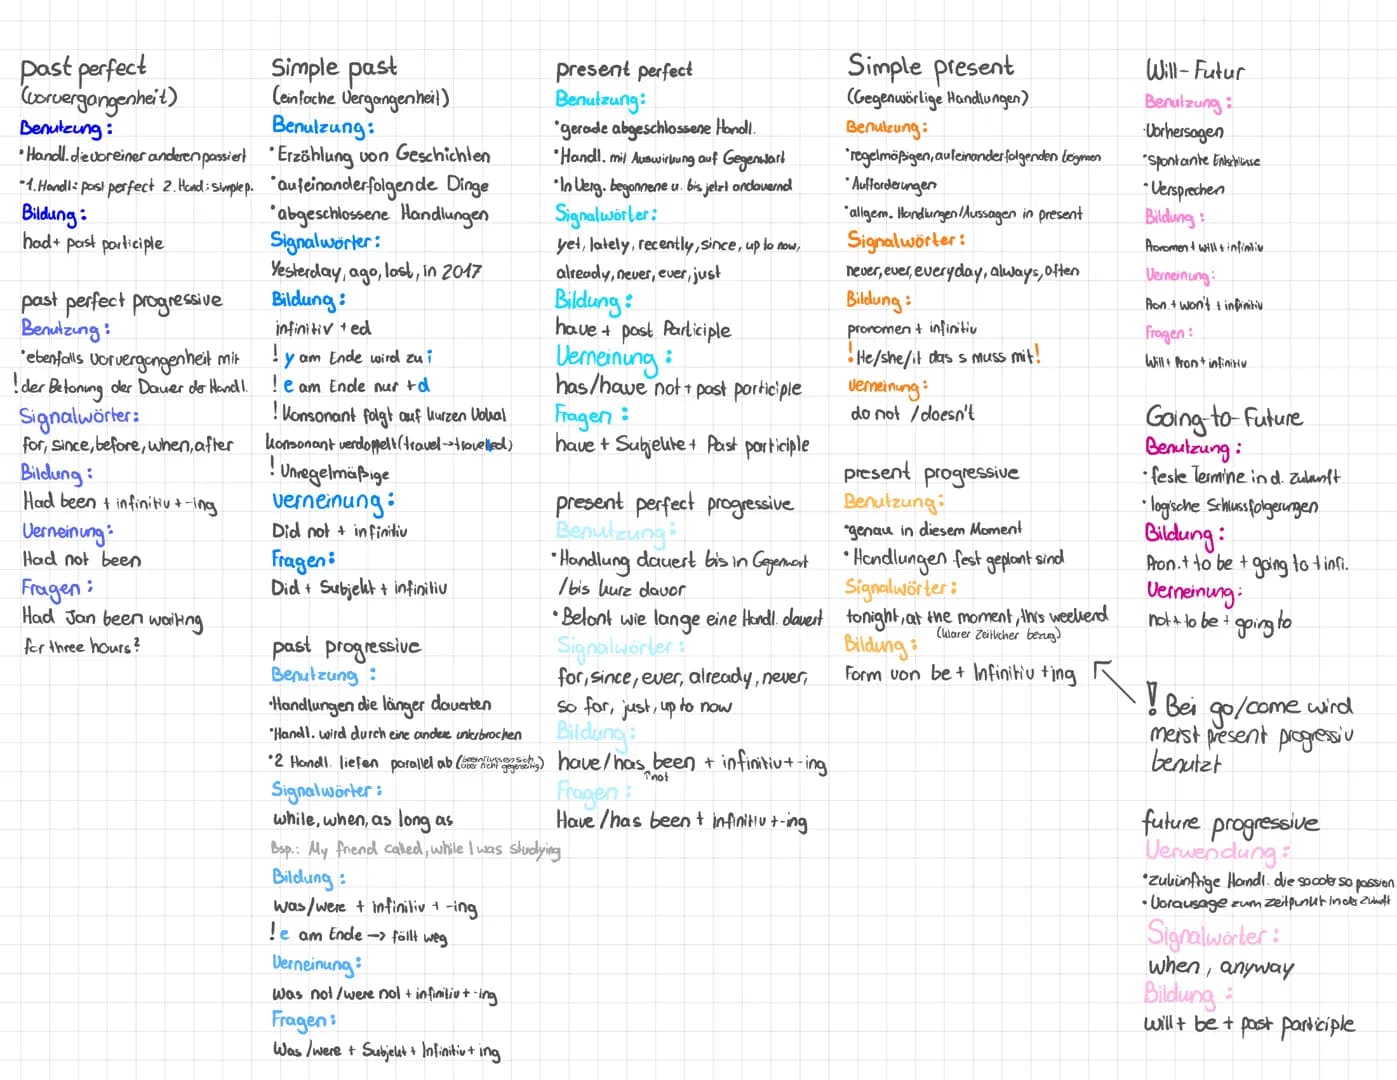 Past perfect
(vorvergangenheit)
Benutzung:
•Handl. die vor einer anderen passiert
•1. Handl: past perfect 2. Hand: simple p.
Bildung:
had+ past participle
past perfect progressive
Benutzung:
•ebenfalls vorvergangenheit mit
!der Betonung der Dauer der Handl.
Signalwörter:
for, since, before, when, after
Bildung:
Had been + infinitiv + -ing
Verneinung:
Had not been
Fragen:
Had Jan been waiting
for three hours?
Simple past
(einfache Vergangenheit)
Benutzung:
•Erzählung von Geschichten
•aufeinanderfolgende Dinge
•abgeschlossene Handlungen
Signalwörter:
Yesterday, ago, last, in 2017
Bildung:
infinitiv +ed
! y am Ende wird zu i
! e am Ende nur +d
! Konsonant folgt auf kurzen Vokal
Konsonant verdoppelt (travel→travelled)
! Unregelmäßige
Verneinung:
Did not + infinitiv
Fragen:
Did + Subjekt + infinitiv
past progressive
Benutzung:
•Handlungen die länger dauerten
•Handl. wird durch eine andere unterbrochen
•2 Handl. liefen parallel ab (beeinflussen sich aber nicht gegenseitig)
Signalwörter:
while, when, as long as
Bsp.: My friend called, while I was studying
Bildung:
Was/were + infinitiv + -ing
! e am Ende → fällt weg
Verneinung:
Was not/were not + infinitiv + -ing
Fragen:
Was/were + Subjekt + Infinitiv + ing
present perfect
Benutzung:
•gerade abgeschlossene Handl.
•Handl. mit Auswirkung auf Gegenwart
•In Verg. begonnene u. bis jetzt andauernd
Signalwörter:
yet, lately, recently, since, up to now,
already, never, ever, just
Bildung:
have + past Participle
Verneinung:
has/have not + past participle
Fragen:
have + Subjekte + Past participle
present perfect progressive
Benutzung:
•Handlung dauert bis in Gegenwart
/bis kurz davor
•Betont wie lange eine Handl. dauert
Signalwörter:
for, since, ever, already, never,
so far, just, up to now
Bildung:
have/has been + infinitiv + -ing
↑not
Fragen:
Have/has been + infinitiv + -ing
Simple present
(Gegenwärtige Handlungen)
Benutzung:
•regelmäßigen, aufeinanderfolgenden
•Aufforderungen
•allgem. Handlungen/Aussagen in present
Signalwörter:
never, ever, everyday, always, often
Bildung:
pronomen + infinitiv
! He/she/it das s muss mit!
Verneinung:
do not / doesn't
present progressive
Benutzung:
•genau in diesem Moment
•Handlungen fest geplant sind
Signalwörter:
tonight, at the moment, this weekend
(klarer zeitlicher bezug)
Bildung:
Form von be + Infinitiv +ing
Will-Futur
Benutzung:
•Vorhersagen
•spontante Entschlüsse
•Versprechen
Bildung:
Pronomen + will + infinitiv
Verneinung:
Pron. + won't + infinitiv
Fragen:
Will + Pron + infinitiv
Going-to-Future
Benutzung:
•feste Termine in d. Zukunft
•logische Schlussfolgerungen
Bildung:
Pron. + to be + going to + infi.
Verneinung:
not + to be + going to
! Bei go/come wird
meist present progressiv
benutzt
future progressive
Verwendung:
•zukünftige Handl. die so oder so passieren
•Vorausage zum zeitpunkt in der Zukunft
Signalwörter:
when, anyway
Bildung:
will + be + past participle